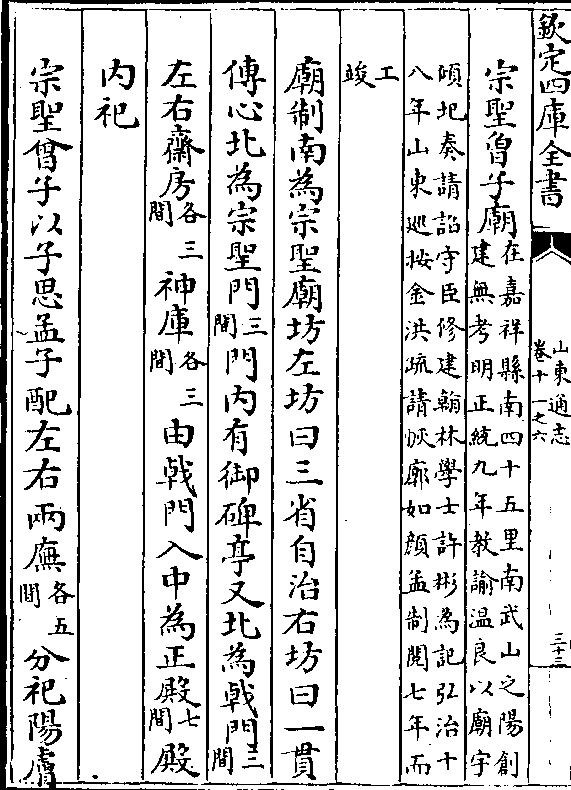 欽定四庫全書
山東通志
卷十一之六
三十三
宗聖曾子廟在嘉祥縣南四十五里南武山之陽創
建無考明正統九年教諭温良以廟宇
頃圯奏請詔守臣修建翰林學士許彬為記弘治十
八年山東巡按金洪疏請恢廓如顔孟制閲七年而
工
竣
廟制南為宗聖廟坊左坊曰三省自治右坊曰一貫
傳心北為宗聖門三間門内有御碑亭又北為㦸門三間
左右齋房各三間神庫各三間由㦸門入中為正殿七間殿
内祀
宗聖曾子以子思孟子配左右兩廡各五間分祀陽膚